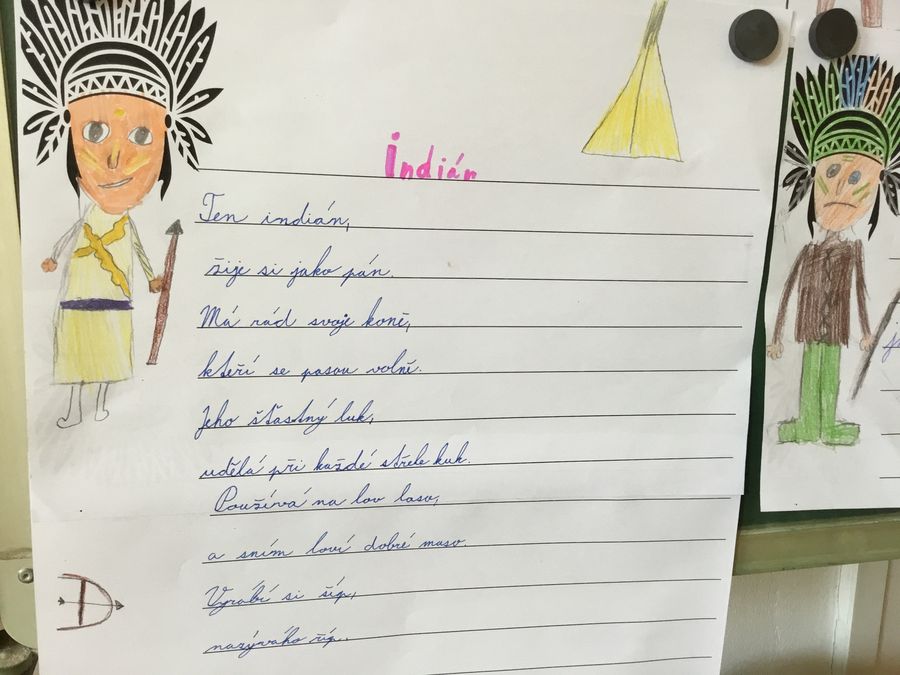 Indián
Ten indián,
žije si jako pán.
Má rád svoje koně,
kteří se pasou volně.
Jeho šťastný luk,
udělá při každé střele kuk.
Používá na lov laso,
a sním loví dobré maso.
Vyrábí si šíp,
nazýváho říp.